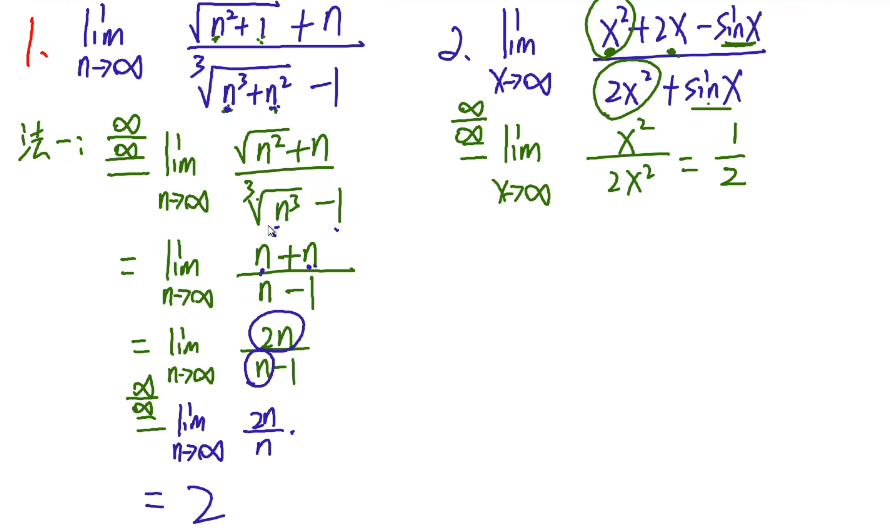 1. lim n→∞ (√(n²+1) + n) / (∛(n³+n²) − 1)
法一: ∞/∞ = lim n→∞ (√(n²) + n) / (∛(n³) − 1)
= lim n→∞ (n + n) / (n − 1)
= lim n→∞ 2n / (n − 1)
∞/∞ = lim n→∞ 2n / n.
= 2
2. lim x→∞ (x² + 2x − sinx) / (2x² + sinx)
∞/∞ = lim x→∞ x² / 2x² = 1/2